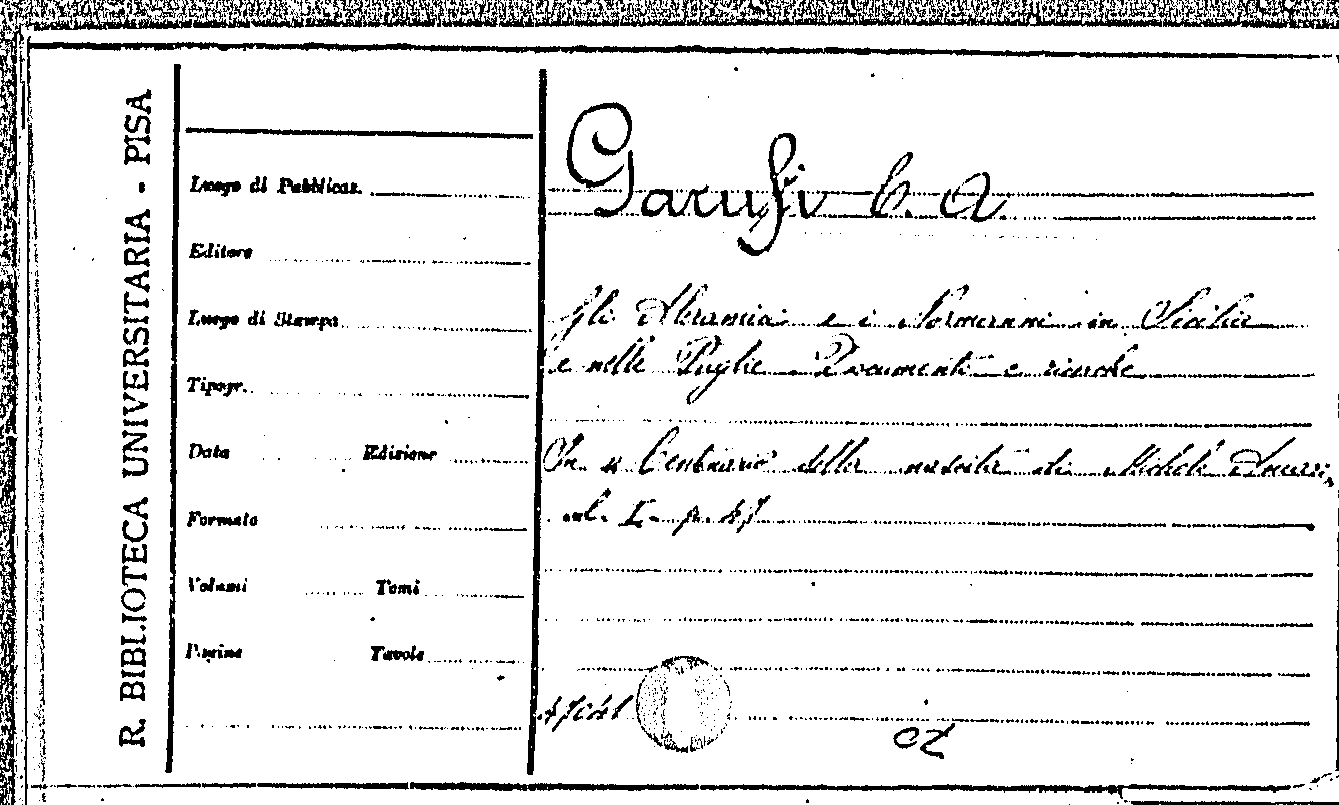 R. BIBLIOTECA UNIVERSITARIA - PISA
Luogo di Pubblicaz.
Editore
Luogo di Stampa
Tipogr.
Data Edizione
Formato
Volumi Tomi
Pagine Tavole
Garufi C. A.
Gli Aleramici e i Normanni in Sicilia
e nelle Puglie Documenti e ricerche
In Centenario della nascita di Michele Amari,
vol. I p. 47